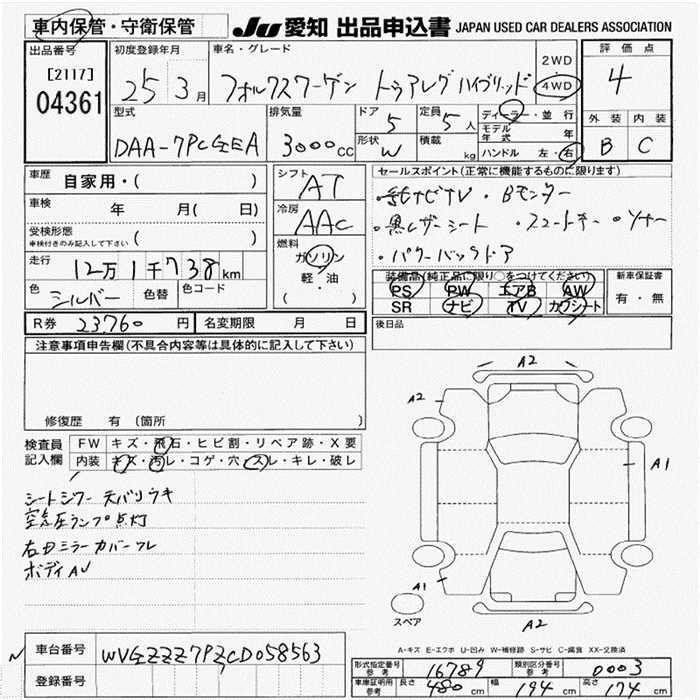 車内保管・守衛保管
JU 愛知 出品申込書 JAPAN USED CAR DEALERS ASSOCIATION
出品番号
[2117]
04361
初度登録年月
25 3月
車名・グレード
フォルクスワーゲン トゥアレグ ハイブリッド
2WD
4WD
評価点
4
外装 内装
B C
型式
DAA-7PCGEA
排気量
3000cc
ドア
5
形状
W
定員
5人
積載
kg
ディーラー・並行
モデル年式 年
ハンドル 左・右
車歴 自家用・( )
車検 年 月( 日)
受検形態
車検付きのみ記入して下さい ( )
走行 12万1千738km
色 シルバー 色替 色コード
シフト
AT
冷房
AAC
燃料
ガソリン
軽・油
( )
セールスポイント(正常に機能するものに限ります)
・純ナビTV ・Bモニター
・黒レザーシート ・スマートキー ・ソナー
・パワーバックドア
装備品(純正品に限り○をつけてください)
PS PW エアB AW
SR ナビ TV カワシート
新車保証書
有・無
後日品
R券 23.760 円 名変期限 月 日
注意事項申告欄(不具合内容等は具体的に記入して下さい)
修復歴 有 (箇所 )
検査員記入欄
FW キズ・飛石・ヒビ割・リペア跡・X要
内装 キズ・汚レ・コゲ・穴・スレ・キレ・破レ
シートシワー 天バリウキ
空気圧ランプ点灯
右Dミラーカバーワレ
ボディAU
A2
A2
A1
A1
A2
スペア
A-キズ E-エクボ U-凹み W-補修跡 S-サビ C-腐食 XX-交換済
車台番号 WVGZZZ7PZCD058563
登録番号
型式指定番号 参考 16789 類別区分番号 参考 0003
車庫証明用 参考 長さ 480cm 幅 194cm 高さ 174cm